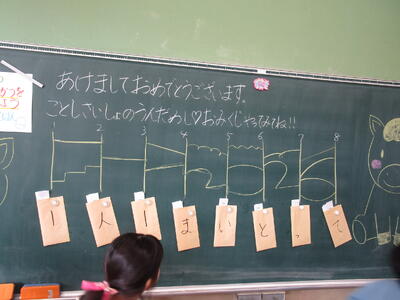 あけましておめでとうございます。
ことしさいしょのうんだめし♡おみくじやってみてね!!
1 2 3 4 5 6 7 8
2026
1 人 1 ま い と っ て